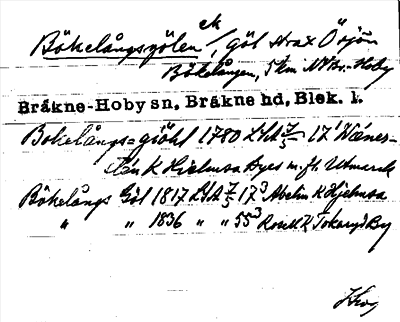 ek
Bökelångsgölen /, göl strax Ö sjön
Bökelången, 5 km NV Br.-Hoby
Bräkne-Hoby sn, Bräkne hd, Blek. l.
Bökelångs=giöhl 1780 LSA 7/5 17¹
K Hielmsa Byes m. fl. Utmarck
Bökelångs Göl 1817 LSA 7/5 17³ Abelin K Hjelmsa
" " 1836 " " 55³ K Tokaryd By